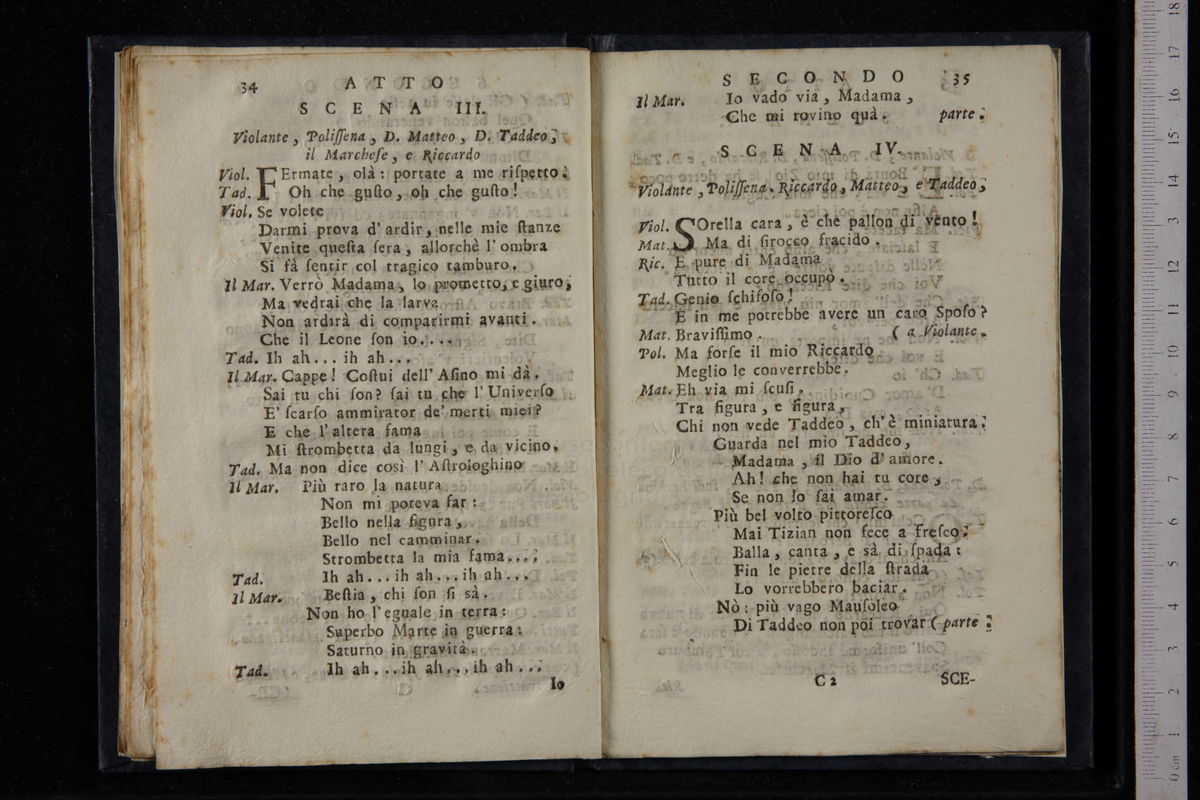 34 ATTO
SCENA III.
Violante, Poliſſena, D. Matteo, D. Taddeo,
il Marcheſe, e Riccardo
Viol. FErmate, olà: portate a me riſpetto.
Tad. Oh che guſto, oh che guſto!
Viol. Se volete
Darmi prova d'ardir, nelle mie ſtanze
Venite queſta ſera, allorchè l'ombra
Si fà ſentir col tragico tamburo.
Il Mar. Verrò Madama, lo prometto, e giuro;
Ma vedrai che la larva
Non ardirà di comparirmi avanti.
Che il Leone ſon io....
Tad. Ih ah... ih ah...
Il Mar. Cappe! Coſtui dell'Aſino mi dà.
Sai tu chi ſon? ſai tu che l'Univerſo
E' ſcarſo ammirator de' merti miei?
E che l'altera fama
Mi ſtrombetta da lungi, e da vicino.
Tad. Ma non dice così l'Aſtrologhino
Il Mar. Più raro la natura
Non mi poteva far:
Bello nella figura,
Bello nel camminar.
Strombetta la mia fama...
Tad. Ih ah...ih ah...ih ah...
Il Mar. Beſtia, chi ſon ſi sà.
Non ho l'eguale in terra:
Superbo Marte in guerra:
Saturno in gravità.
Tad. Ih ah...ih ah...ih ah...
Io
SECONDO 35
Il Mar. Io vado via, Madama,
Che mi rovino quà. parte.
SCENA IV.
Violante, Poliſſena, Riccardo, Matteo, e Taddeo,
Viol. SOrella cara, è che pallon di vento!
Mat. Ma di ſirocco fracido.
Ric. E pure di Madama
Tutto il core occupo.
Tad. Genio ſchifoſo!
E in me potrebbe avere un caro Spoſo?
Mat. Braviſſimo. (a Violante.
Pol. Ma forſe il mio Riccardo
Meglio le converrebbe.
Mat. Eh via mi ſcuſi.
Tra figura, e figura,
Chi non vede Taddeo, ch'è miniatura.
Guarda nel mio Taddeo,
Madama, il Dio d'amore.
Ah! che non hai tu core,
Se non lo ſai amar.
Più bel volto pittoreſco
Mai Tizian non fece a freſco:
Balla, canta, e sà di ſpada:
Fin le pietre della ſtrada
Lo vorrebbero baciar.
Nò: più vago Mauſoleo
Di Taddeo non poi trovar (parte.
C2 SCE-